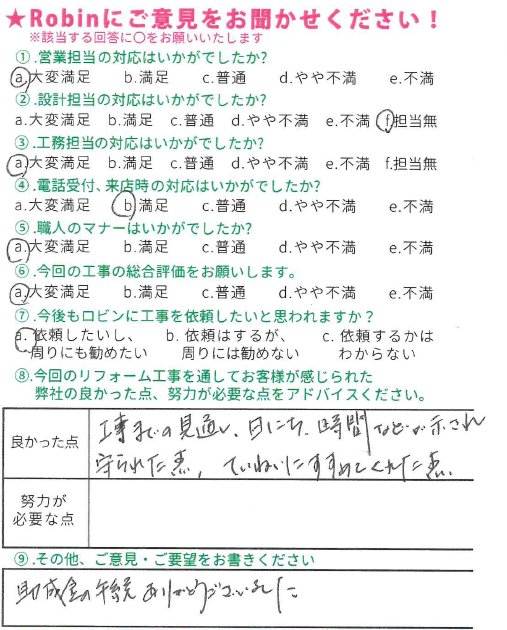 ★Robinにご意見をお聞かせください！
※該当する回答に〇をお願いいたします
①.営業担当の対応はいかがでしたか?
a.大変満足 b.満足 c.普通 d.やや不満 e.不満
②.設計担当の対応はいかがでしたか?
a.大変満足 b.満足 c.普通 d.やや不満 e.不満 f.担当無
③.工務担当の対応はいかがでしたか?
a.大変満足 b.満足 c.普通 d.やや不満 e.不満 f.担当無
④.電話受付、来店時の対応はいかがでしたか?
a.大変満足 b.満足 c.普通 d.やや不満 e.不満
⑤.職人のマナーはいかがでしたか?
a.大変満足 b.満足 c.普通 d.やや不満 e.不満
⑥.今回の工事の総合評価をお願いします。
a.大変満足 b.満足 c.普通 d.やや不満 e.不満
⑦.今後もロビンに工事を依頼したいと思われますか？
a. 依頼したいし、 b. 依頼はするが、 c. 依頼するかは
周りにも勧めたい 周りには勧めない わからない
⑧.今回のリフォーム工事を通してお客様が感じられた
弊社の良かった点、努力が必要な点をアドバイスください。
良かった点
工事までの見通し、日にち、時間などが示され
守られた点、ていねいにすすめてくれた点、
努力が
必要な点
⑨.その他、ご意見・ご要望をお書きください
助成金の手続ありがとうございました